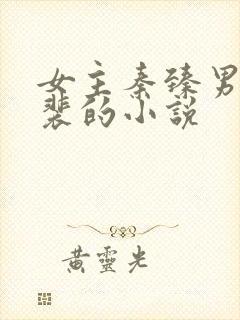 女主秦臻男
裴的小說
黃靈光